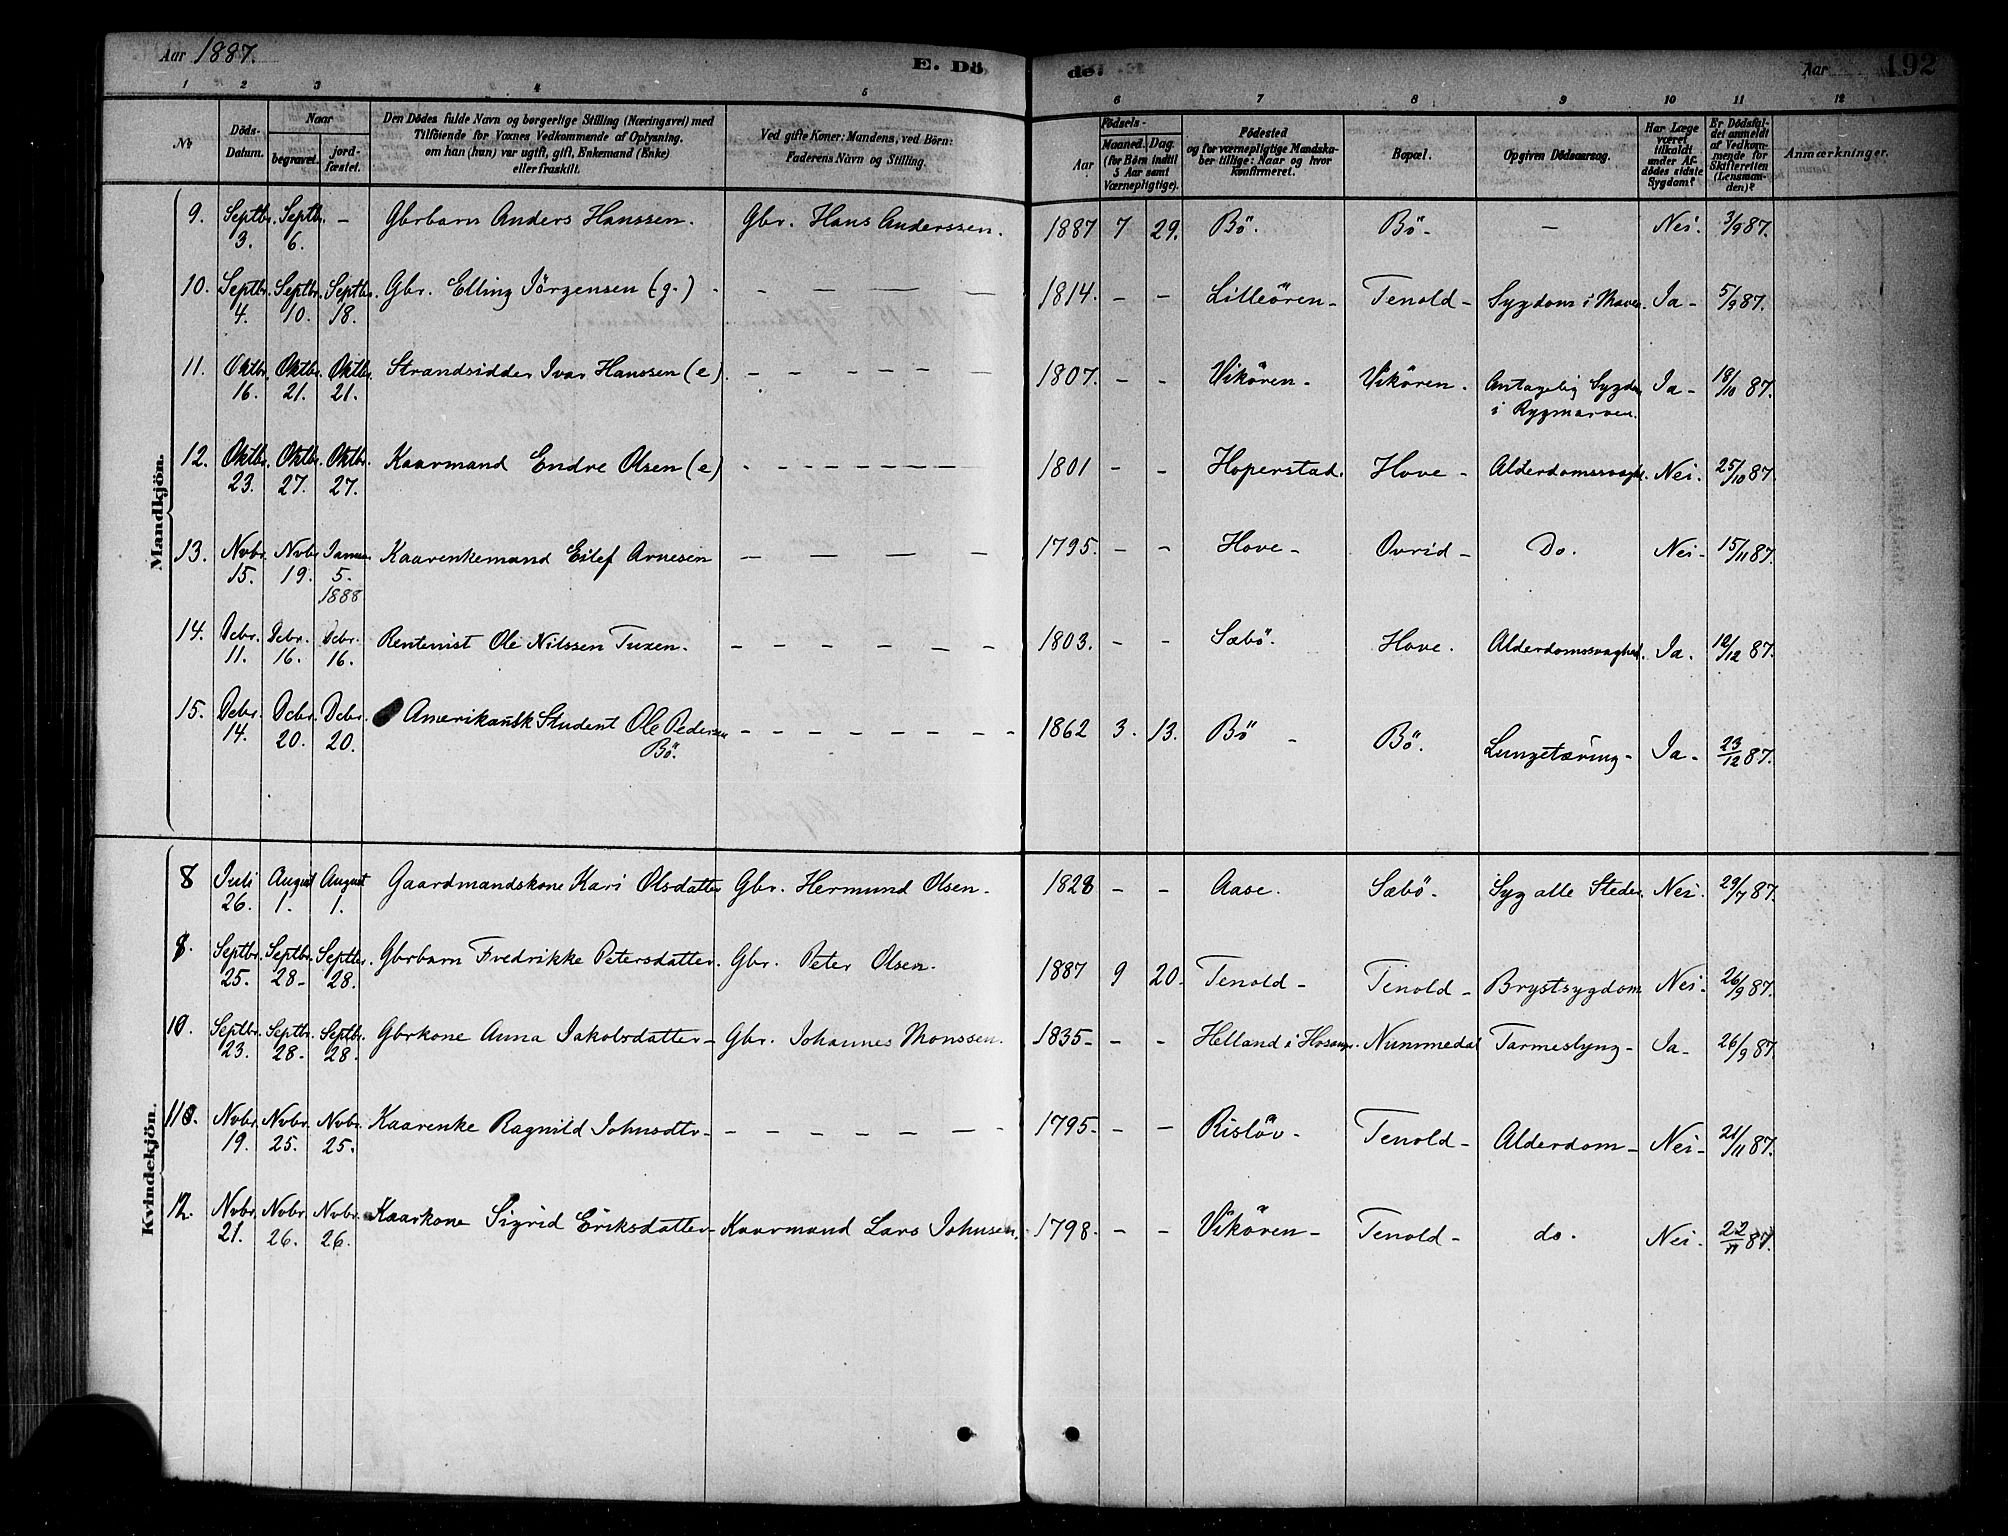 Aar 1887. E. Döde. Aar 192
1 2 3 4 5 6 7 8 9 10 11 12
No Döds-Datum. Naar begravet. jordfæstet. Den Dödes fulde Navn og borgerlige Stilling (Næringsvei) med Tilföiende for Voxnes Vedkommende af Oplysning, om han (hun) var ugift, gift, Enkemand (Enke) eller fraskilt. Ved gifte Koner: Mandens, ved Börn: Faderens Navn og Stilling. Födsels- Aar Maaned. Dag. (for Börn indtil 5 Aar samt Værnepligtige). Födested og for værnepligtige Mandskaber tillige: Naar og hvor konfirmeret. Bopæl. Opgiven Dödsaarsag. Har Læge været tilkaldt under Afdödes sidste Sygdom? Er Dödsfaldet anmeldt af Vedkommende for Skifteretten (Lensmanden)? Anmærkninger.
Mandkjön.
9. Septbr. 3. Septb. 6. – Gbrbarn Anders Hanssen. Gbr. Hans Anderssen. 1887 7 29. Bö. Bö – – Nei. 3/9 87.
10. Septbr. 4. Septbr. 10. Septbr. 18. Gbr. Elling Jörgensen (g.) – – – – 1814. – – Lilleören – Tenold – Sygdom i Maven Ja – 5/9 87.
11. Oktbr. 16. Oktbr. 21. Oktbr. 21. Strandsidder Ivar Hanssen (e) – – – – – – 1807. – – Vikören – Vikören. Antagelig Sygdom i Rygmarven. Ja – 18/10 87.
12. Oktbr. 23. Oktbr. 27. Oktbr. 27. Kaarmand Endre Olsen (e) – – – – – – – 1801 – – Hoperstad. Hove – Alderdomssvaghed. Nei. 25/10 87.
13. Nvbr. 15. Nvbr. 19. Januar 5. 1888 Kaarenkemand Eilef Arnesen – – – – 1795. – – Hove – Ovrid – Do. Nei – 15/11 87.
14. Debr. 11. Debr. 16. Debr. 16. Rentenist Ole Nilssen Tuxen. – – – – – – 1803. – – Sæbö. Hove. Alderdomssvaghed. Ja. 12/12 87.
15. Debr. 14. Debr. 20. Debr. 20. Amerikansk Student Ole Pedersen Bö. – – – – – – – – 1862 3. 13. Bö – Bö. Lungetæring – Ja – 23/12 87.
Kvindekjön.
8 Juli 26. August 1. August 1. Gaardmandskone Kari Olsdatter Gbr. Hermund Olsen. 1828 – – Aase. Sæbö. Syg alle Steder Nei. 29/7 87.
Septbr. 25. Septbr. 28 – Septbr. 28. Gbrbarn Fredrikke Petersdatter. Gbr. Peter Olsen. 1887 9 20. Tenold – Tenold – Brystsygdom Nei – 26/9 87.
10. Septbr. 23. Septbr. 28 – Septbr. 28. Gbrkone Anna Jakobsdatter – Gbr. Johannes Monssen. 1835 – – – Helland i Hosanger. Nummedal Tarmeslyng – Ja – 26/9 87.
11. Nvbr. 19. Nvbr. 25. Nvbr. 25. Kaarenke Ragnild Johnsdtr – – – – – – – 1795 – – – Rislöv – Tenold – Alderdom – Nei – 21/11 87.
12. Nvbr. 21. Nvbr. 26. Nvbr. 26. Kaarkone Sigrid Eriksdatter – Kaarmand Lars Johnsen. 1798. – – Vikören – Tenold – do. Nei. 22/11 87.